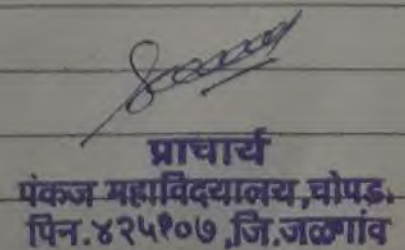 प्राचार्य
पंकज महाविदयालय,चोपड.
पिन.४२५१०७,जि.जळगांव